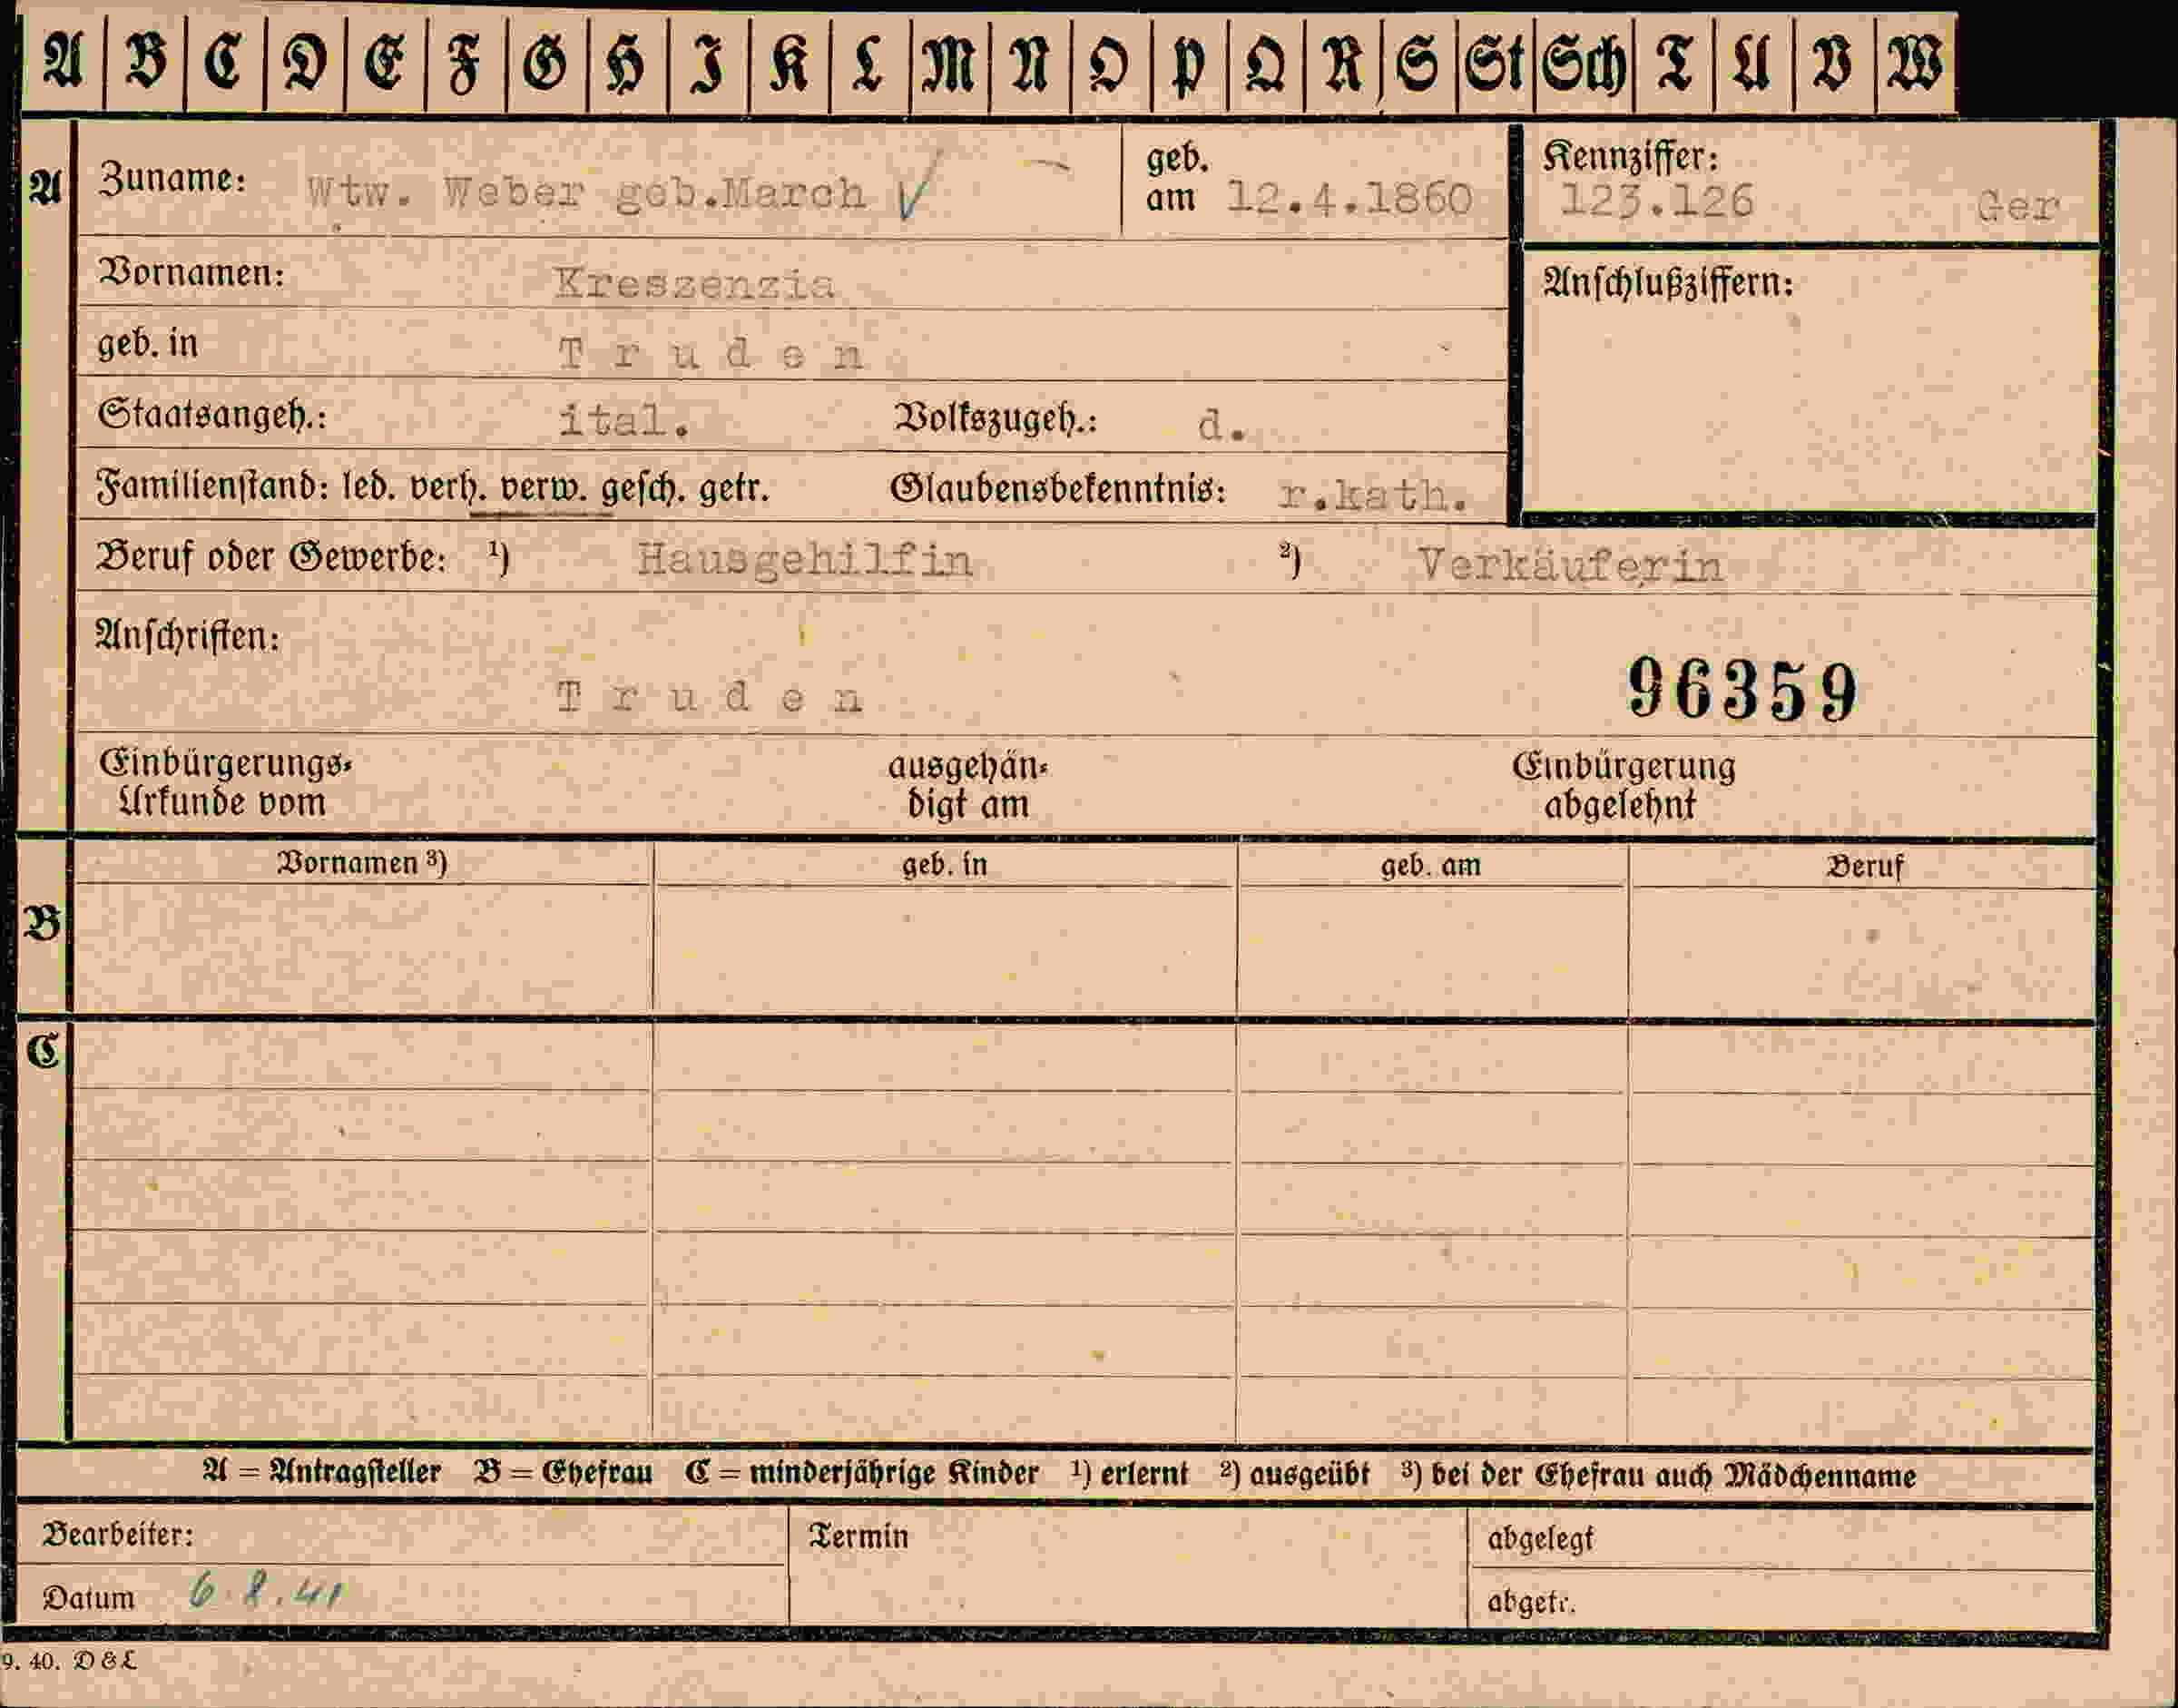 A B C D E F G H I K L M N O P Q R S St Sch T U V W
A Zuname: Wtw. Weber geb.March geb. am 12.4.1860
Kennziffer: 123.126 Ger
Vornamen: Kreszenzia
Anschlußziffern:
geb. in T r u d e n
Staatsangeh.: ital. Volkszugeh.: d.
Familienstand: led. verh. verw. gesch. getr. Glaubensbekenntnis: r.kath.
Beruf oder Gewerbe: ¹) Hausgehilfin ²) Verkäuferin
Anschriften:
T r u d e n
96359
Einbürgerungs-
Urkunde vom
ausgehän-
digt am
Einbürgerung
abgelehnt
Vornamen ³) geb. in geb. am Beruf
B
C
A = Antragsteller B = Ehefrau C = minderjährige Kinder ¹) erlernt ²) ausgeübt ³) bei der Ehefrau auch Mädchenname
Bearbeiter: Termin abgelegt
Datum 6.8.41 abgetr.
9. 40. D & L